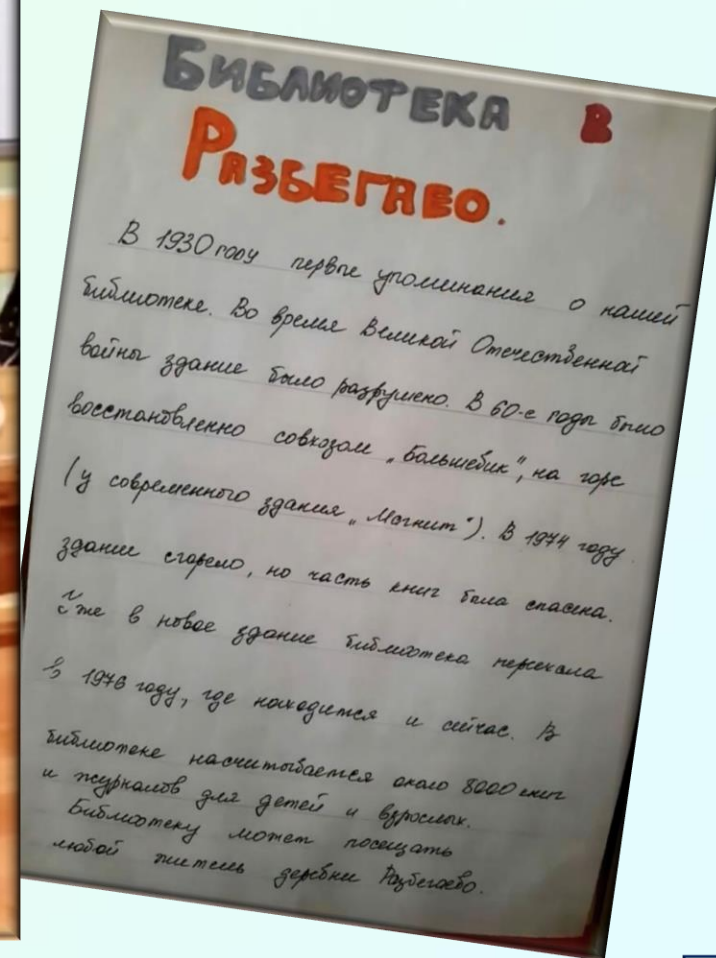 БИБЛИОТЕКА В
РАЗБЕГАЕВО.
В 1930 году первые упоминания о нашей
библиотеке. Во время Великой Отечественной
войны здание было разрушено. В 60-е годы было
восстановленно совхозом „Большевик", на горе
(у современного здания „Магнит"). В 1974 году
здание сгорело, но часть книг была спасена.
Уже в новое здание библиотека переехала
в 1976 году, где находится и сейчас. В
библиотеке насчитывается около 8000 книг
и журналов для детей и взрослых.
Библиотеку может посещать
любой житель деревни Разбегаево.